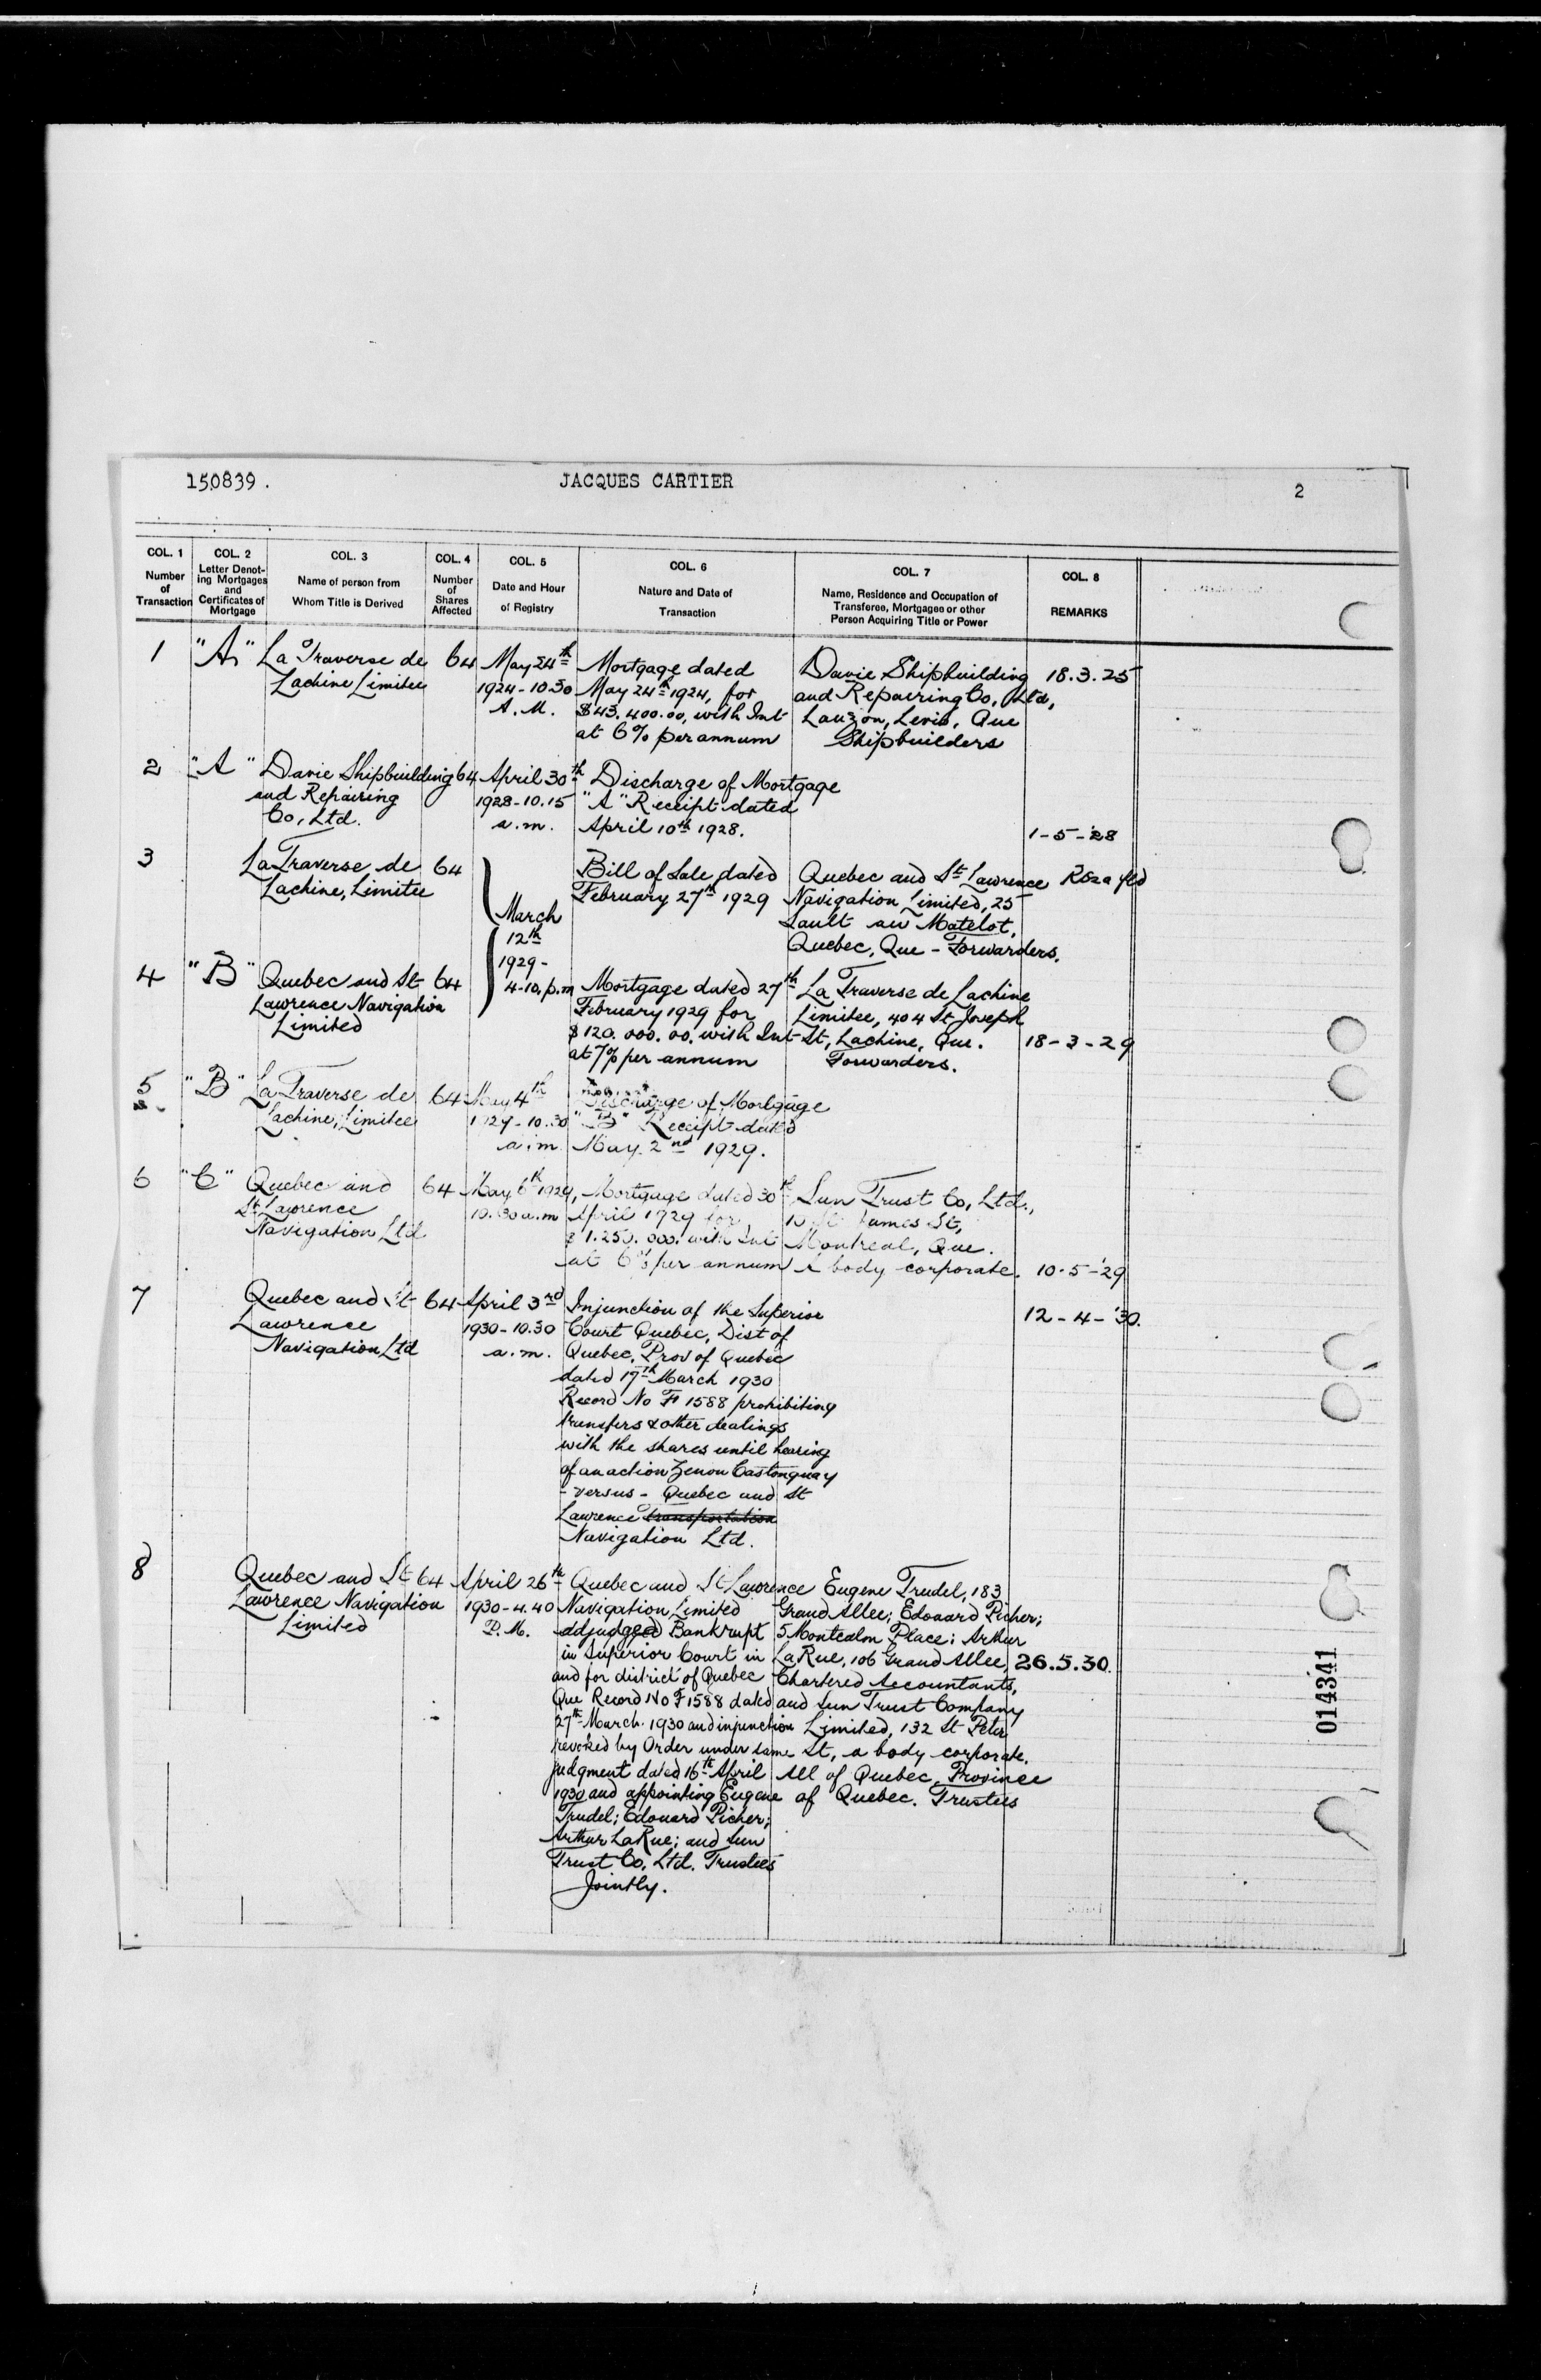 150839.
JACQUES CARTIER
2
COL. 1
Number
of
Transaction
COL. 2
Letter Denot-
ing Mortgages
and
Certificates of
Mortgage
COL. 3
Name of person from
Whom Title is Derived
COL. 4
Number
of
Shares
Affected
COL. 5
Date and Hour
of Registry
COL. 6
Nature and Date of
Transaction
COL. 7
Name, Residence and Occupation of
Transferee, Mortgagee or other
Person Acquiring Title or Power
COL. 8
REMARKS
1
"A"
La Traverse de
Lachine Limitee
64
May 24th
1924-10.30
A.M.
Mortgage dated
May 24th 1924, for
$43.400.00, with Int
at 6% per annum
Davie Shipbuilding
and Repairing Co, Ltd,
Lauzon, Levis, Que
Shipbuilders
18.3.25
2
"A"
Davie Shipbuilding
and Repairing
Co, Ltd.
64
April 30th
1928-10.15
a.m.
Discharge of Mortgage
"A" Receipt dated
April 10th 1928.
1-5-'28
3
La Traverse de
Lachine, Limitee
64
March
12th
1929-
4-10, p.m
Bill of Sale dated
February 27th 1929
Quebec and St Lawrence
Navigation Limited, 25
Sault au Matelot,
Quebec, Que - Forwarders.
4
"B"
Quebec and St
Lawrence Navigation
Limited
64
Mortgage dated 27th
February 1929 for
$120.000.00. with Int
at 7% per annum
La Traverse de Lachine
Limitee, 404 St Joseph
St, Lachine, Que.
Forwarders.
18-3-29
5
"B"
La Traverse de
Lachine, Limitee
64
May 4th
1929-10.30
a.m.
Discharge of Mortgage
"B" Receipt dated
May 2nd 1929.
6
"C"
Quebec and
St Lawrence
Navigation Ltd
64
May 6th 1929,
10.30 a.m
Mortgage dated 30th
April 1929 for
$1.250.000. with Int
at 6% per annum
Sun Trust Co, Ltd.,
10 St James St,
Montreal, Que.
A body corporate.
10-5-'29
7
Quebec and St
Lawrence
Navigation Ltd
64
April 3rd
1930-10.30
a.m.
Injunction of the Superior
Court Quebec, Dist of
Quebec, Prov of Quebec
dated 17th March 1930
Record No F 1588 prohibiting
transfers & other dealings
with the shares until hearing
of an action Zenon Castonguay
- versus - Quebec and St
Lawrence Transportation
Navigation Ltd.
12-4-'30.
8
Quebec and St
Lawrence Navigation
Limited
64
April 26th
1930-4.40
P.M.
Quebec and St Lawrence
Navigation Limited
adjudged Bankrupt
in Superior Court in
and for district of Quebec
Que Record No F 1588 dated
27th March 1930 and injunction
revoked by Order under same
judgment dated 16th April
1930 and appointing Eugene
Trudel; Edouard Picher;
Arthur LaRue; and Sun
Trust Co, Ltd. Trustees
Jointly.
Eugene Trudel, 183
Grand Allee; Edouard Picher;
5 Montcalm Place; Arthur
LaRue, 106 Grand Allee,
Chartered Accountants,
and Sun Trust Company
Limited, 132 St Peter
St, a body corporate.
All of Quebec, Province
of Quebec. Trustees
26.5.30.
014341